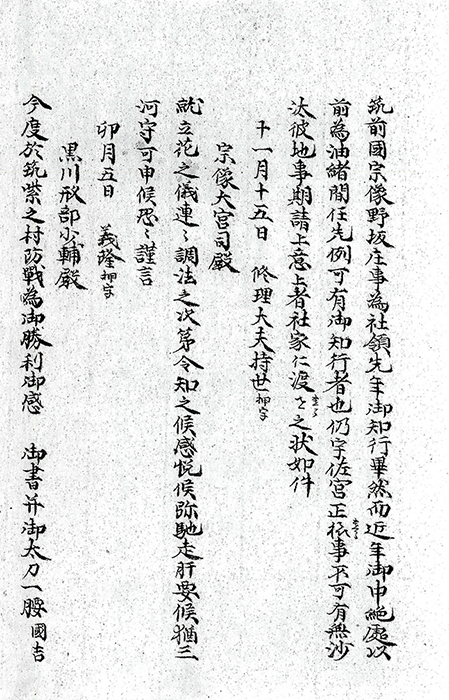 筑前國宗像野坂庄事為社領先年御知行畢然而近年御中絶處以
前為油緒間任先例可有御知行者也仍宇佐宮正根事不可有無沙
汰彼地事期請上意上者社家仁渡之状如件
十一月十五日　修理大夫持世押字
宗像大宮司殿
就立花之儀連々調法之次第令知之候感悦候弥馳走肝要候猶三
河守可申候恐々謹言
卯月五日　義隆押字
黒川刑部少輔殿
今度於筑紫之村防戦為御勝利御感　御書并御太刀一腰國吉